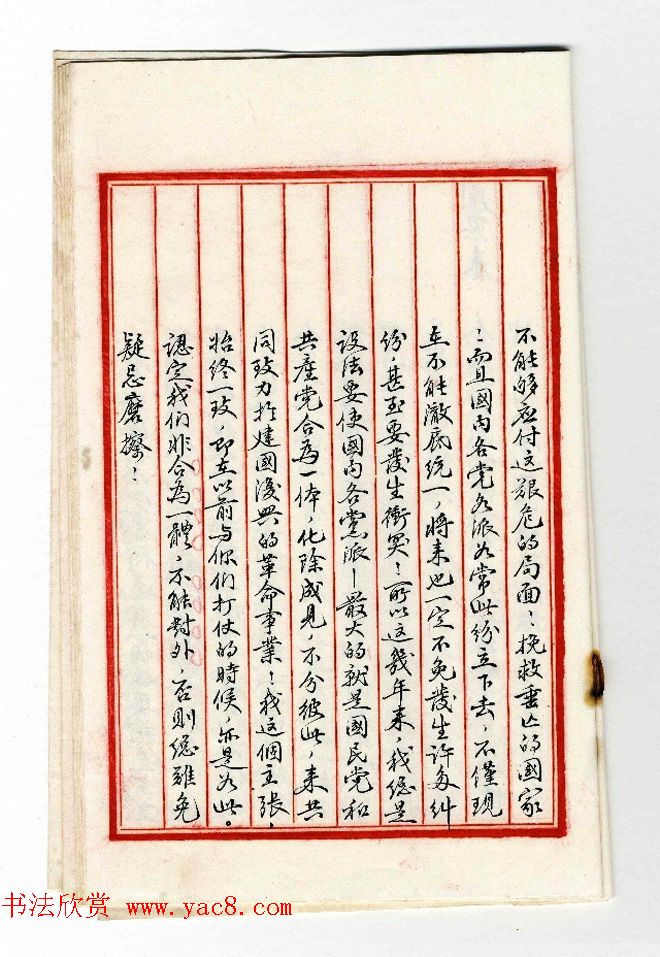 不能够应付这艰危的局面！挽救垂亡的國家
！而且國内各党各派如常此纷立下去，不僅现
在不能澈底统一，将来也一定不免發生许多纠
纷，甚至要發生衝突！所以这幾年来，我總是
设法要使國内各黨派—最大的就是國民党和
共產党合為一体，化除成見，不分彼此，来共
同致力於建國復興的革命事業！我这個主張，
始终一致，即在以前与你们打仗的時候，亦是如此。
認定我们非合為一體，不能對外，否則總難免
疑忌磨擦！
书法欣赏 www.yac8.com